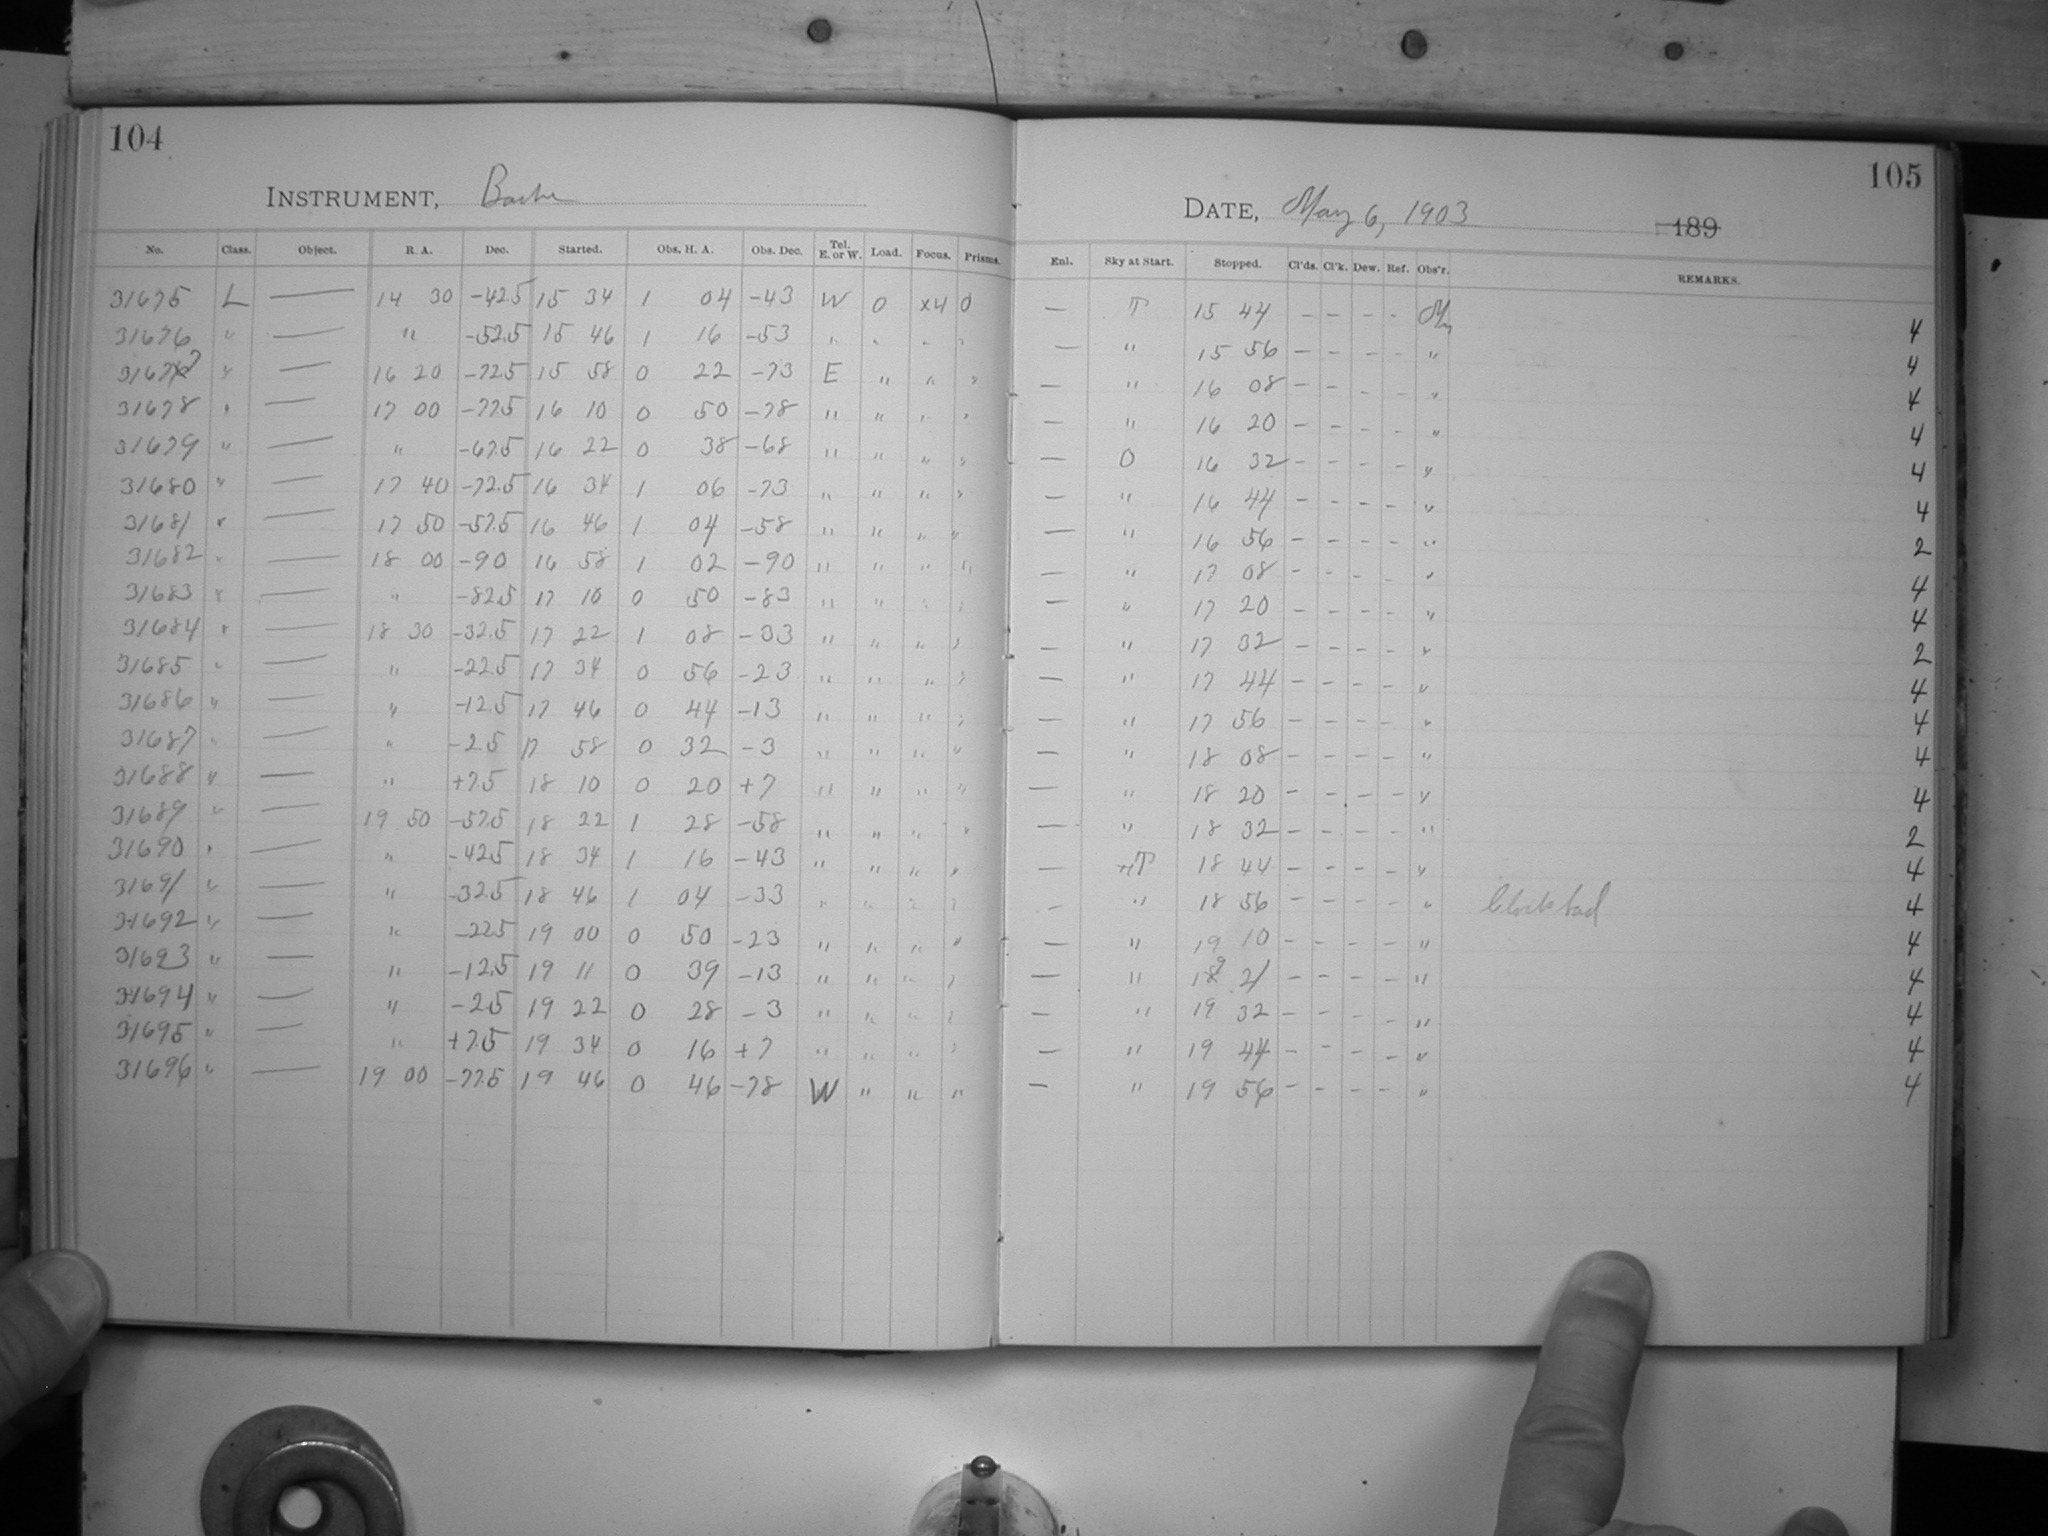 104
INSTRUMENT, Bache
No. Class. Object. R. A. Dec. Started. Obs. H. A. Obs. Dec. Tel. E. or W. Load. Focus. Prisms.
31675 L — 14 30 -42.5 15 34 1 04 -43 W 0 x4 0
31676 " — " -52.5 15 46 1 16 -53 " " " "
31677 " — 16 20 -72.5 15 58 0 22 -73 E " " "
31678 " — 17 00 -77.5 16 10 0 50 -78 " " " "
31679 " — " -67.5 16 22 0 38 -68 " " " "
31680 " — 17 40 -72.5 16 34 1 06 -73 " " " "
31681 " — 17 50 -57.5 16 46 1 04 -58 " " " "
31682 " — 18 00 -90 16 58 1 02 -90 " " " "
31683 " — " -82.5 17 10 0 50 -83 " " " "
31684 " — 18 30 -32.5 17 22 1 08 -33 " " " "
31685 " — " -22.5 17 34 0 56 -23 " " " "
31686 " — " -12.5 17 46 0 44 -13 " " " "
31687 " — " -2.5 17 58 0 32 -3 " " " "
31688 " — " +7.5 18 10 0 20 +7 " " " "
31689 " — 19 50 -57.5 18 22 1 28 -58 " " " "
31690 " — " -42.5 18 34 1 16 -43 " " " "
31691 " — " -32.5 18 46 1 04 -33 " " " "
31692 " — " -22.5 19 00 0 50 -23 " " " "
31693 " — " -12.5 19 11 0 39 -13 " " " "
31694 " — " -2.5 19 22 0 28 -3 " " " "
31695 " — " +7.5 19 34 0 16 +7 " " " "
31696 " — 19 00 -77.5 19 46 0 46 -78 W " " "
105
DATE, May 6, 1903 189
Enl. Sky at Start. Stopped. Cl'ds. Cl'k. Dew. Ref. Obs'r. REMARKS.
— T 15 44 - - - - 4
— " 15 56 - - - - " 4
— " 16 08 - - - - " 4
— " 16 20 - - - - " 4
— 0 16 32 - - - - " 4
— " 16 44 - - - - " 4
— " 16 56 - - - - " 2
— " 17 08 - - - - " 4
— " 17 20 - - - - " 4
— " 17 32 - - - - " 2
— " 17 44 - - - - " 4
— " 17 56 - - - - " 4
— " 18 08 - - - - " 4
— " 18 20 - - - - " 4
— " 18 32 - - - - " 2
— T 18 44 - - - - " 4
— " 18 56 - - - - " Clock bad 4
— " 19 10 - - - - " 4
— " 19 21 - - - - " 4
— " 19 32 - - - - " 4
— " 19 44 - - - - " 4
— " 19 56 - - - - " 4